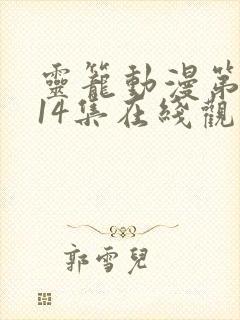 靈籠動漫第
14集在綫觀
郭雪兒